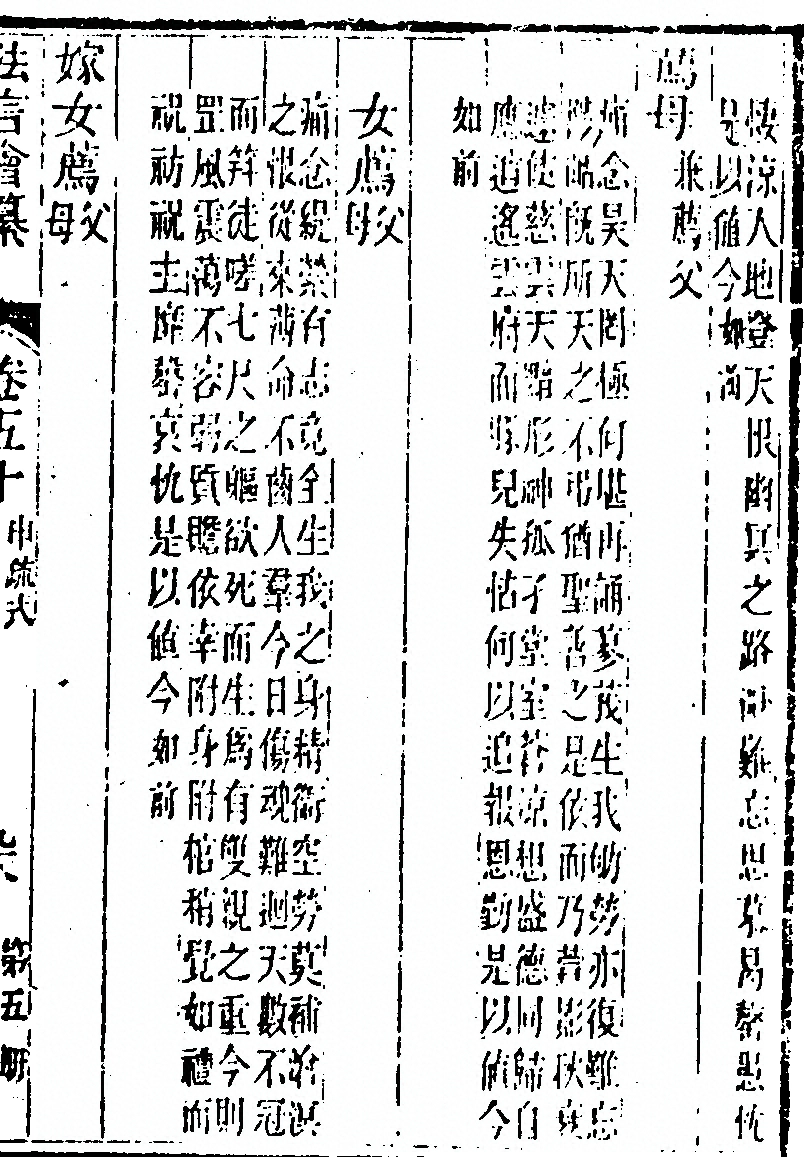 悽涼人地登天恨幽冥之路難忘思慕曷罄悲忱
是以值今如前
薦母 兼薦父
痛念昊天罔極何堪再誦蓼莪生我劬勞亦復難忘
既所天之不弔猶聖善之是依而乃萱影秋衰
遽使慈雲天黯形神孤孑堂室蒼涼想盛德回歸自
應逍遙雲府而孱兒失怙何以追報恩勤是以值今
如前
女薦父母
痛念緹縈有志竟全生我之身精衛空勞莫補滄溟
之恨從來薄命不齒人羣今日傷魂難迴天數不冠
而笄徒嗟七尺之軀欲死而生爲有雙親之重今則
罡風震蕩不容弱質瞻依幸附身附棺稍覺如禮而
視祊祝主靡罄哀忱是以值今如前
嫁女薦父母
法言會纂 卷五十 申疏式 九六 第五冊